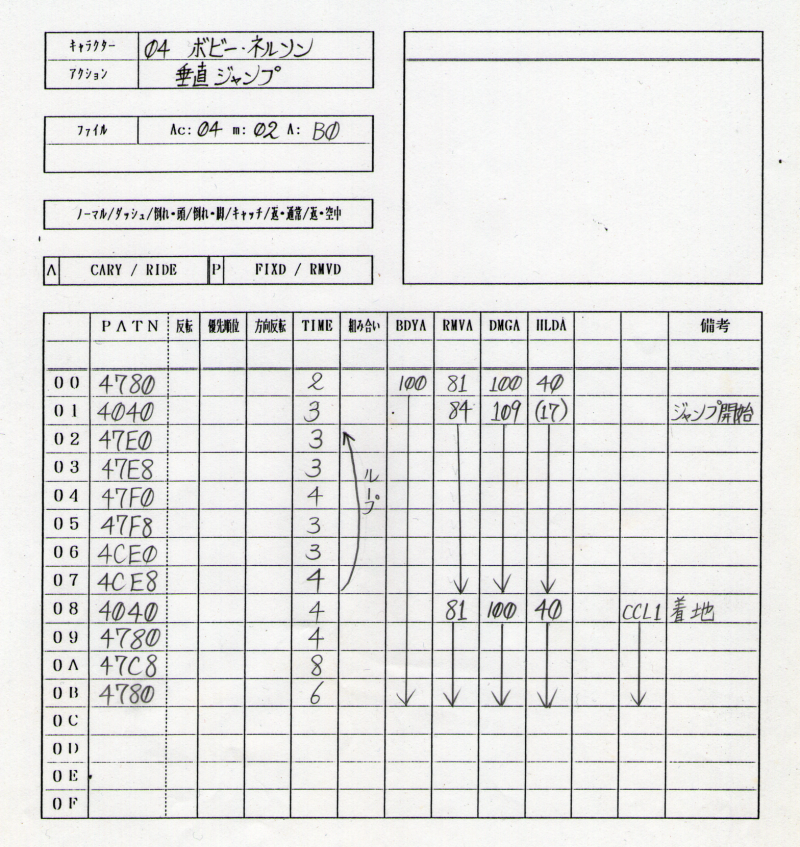 キャラクター 04 ボビー・ネルソン
アクション 垂直ジャンプ
ファイル Ac: 04 m: 02 A: B0
ノーマル/ダッシュ/倒れ・頭/倒れ・脚/キャッチ/返・通常/返・空中
A CARY / RIDE P FIXD / RMVD
PATN 反転 優先順位 方向反転 TIME 組み合い BDYA RMVA DMGA HLDA 備考
00 4780 2 100 81 100 40
01 4040 3 84 109 (17) ジャンプ開始
02 47E0 3
03 47E8 3
ループ
04 47F0 4
05 47F8 3
06 4CE0 3
07 4CE8 4
08 4040 4 81 100 40 CCL1 着地
09 4780 4
0A 47C8 8
0B 4780 6
0C
0D
0E
0F